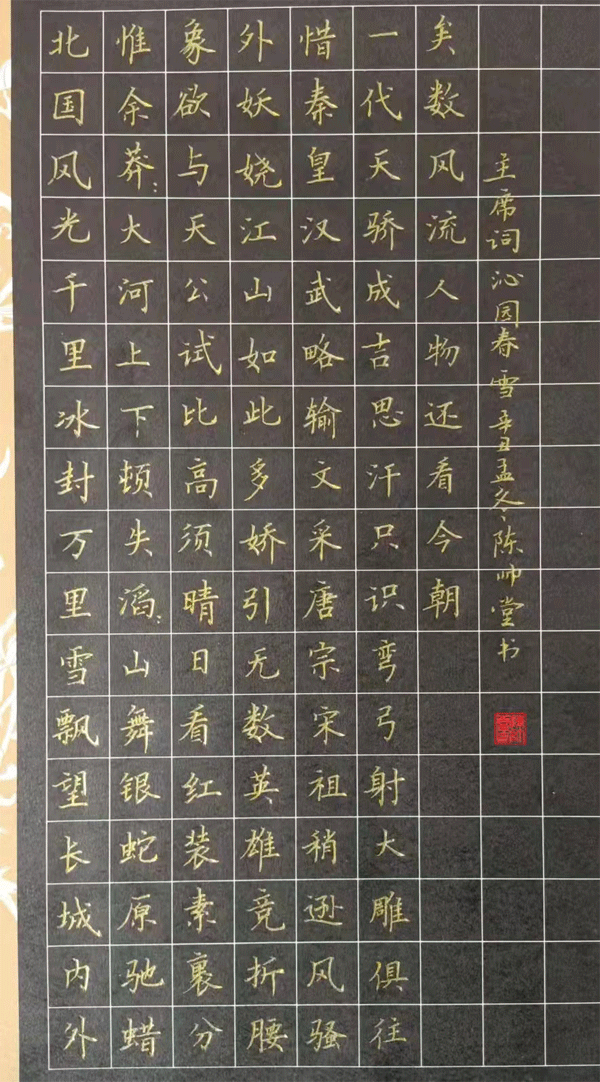 北国风光千里冰封万里雪飘望长城内外
惟余莽:大河上下顿失滔:山舞银蛇原驰蜡
象欲与天公试比高须晴日看红装素裹分
外妖娆江山如此多娇引无数英雄竞折腰
惜秦皇汉武略输文采唐宗宋祖稍逊风骚
一代天骄成吉思汗只识弯弓射大雕俱往
矣数风流人物还看今朝
主席词沁园春雪辛丑孟冬陈帅堂书